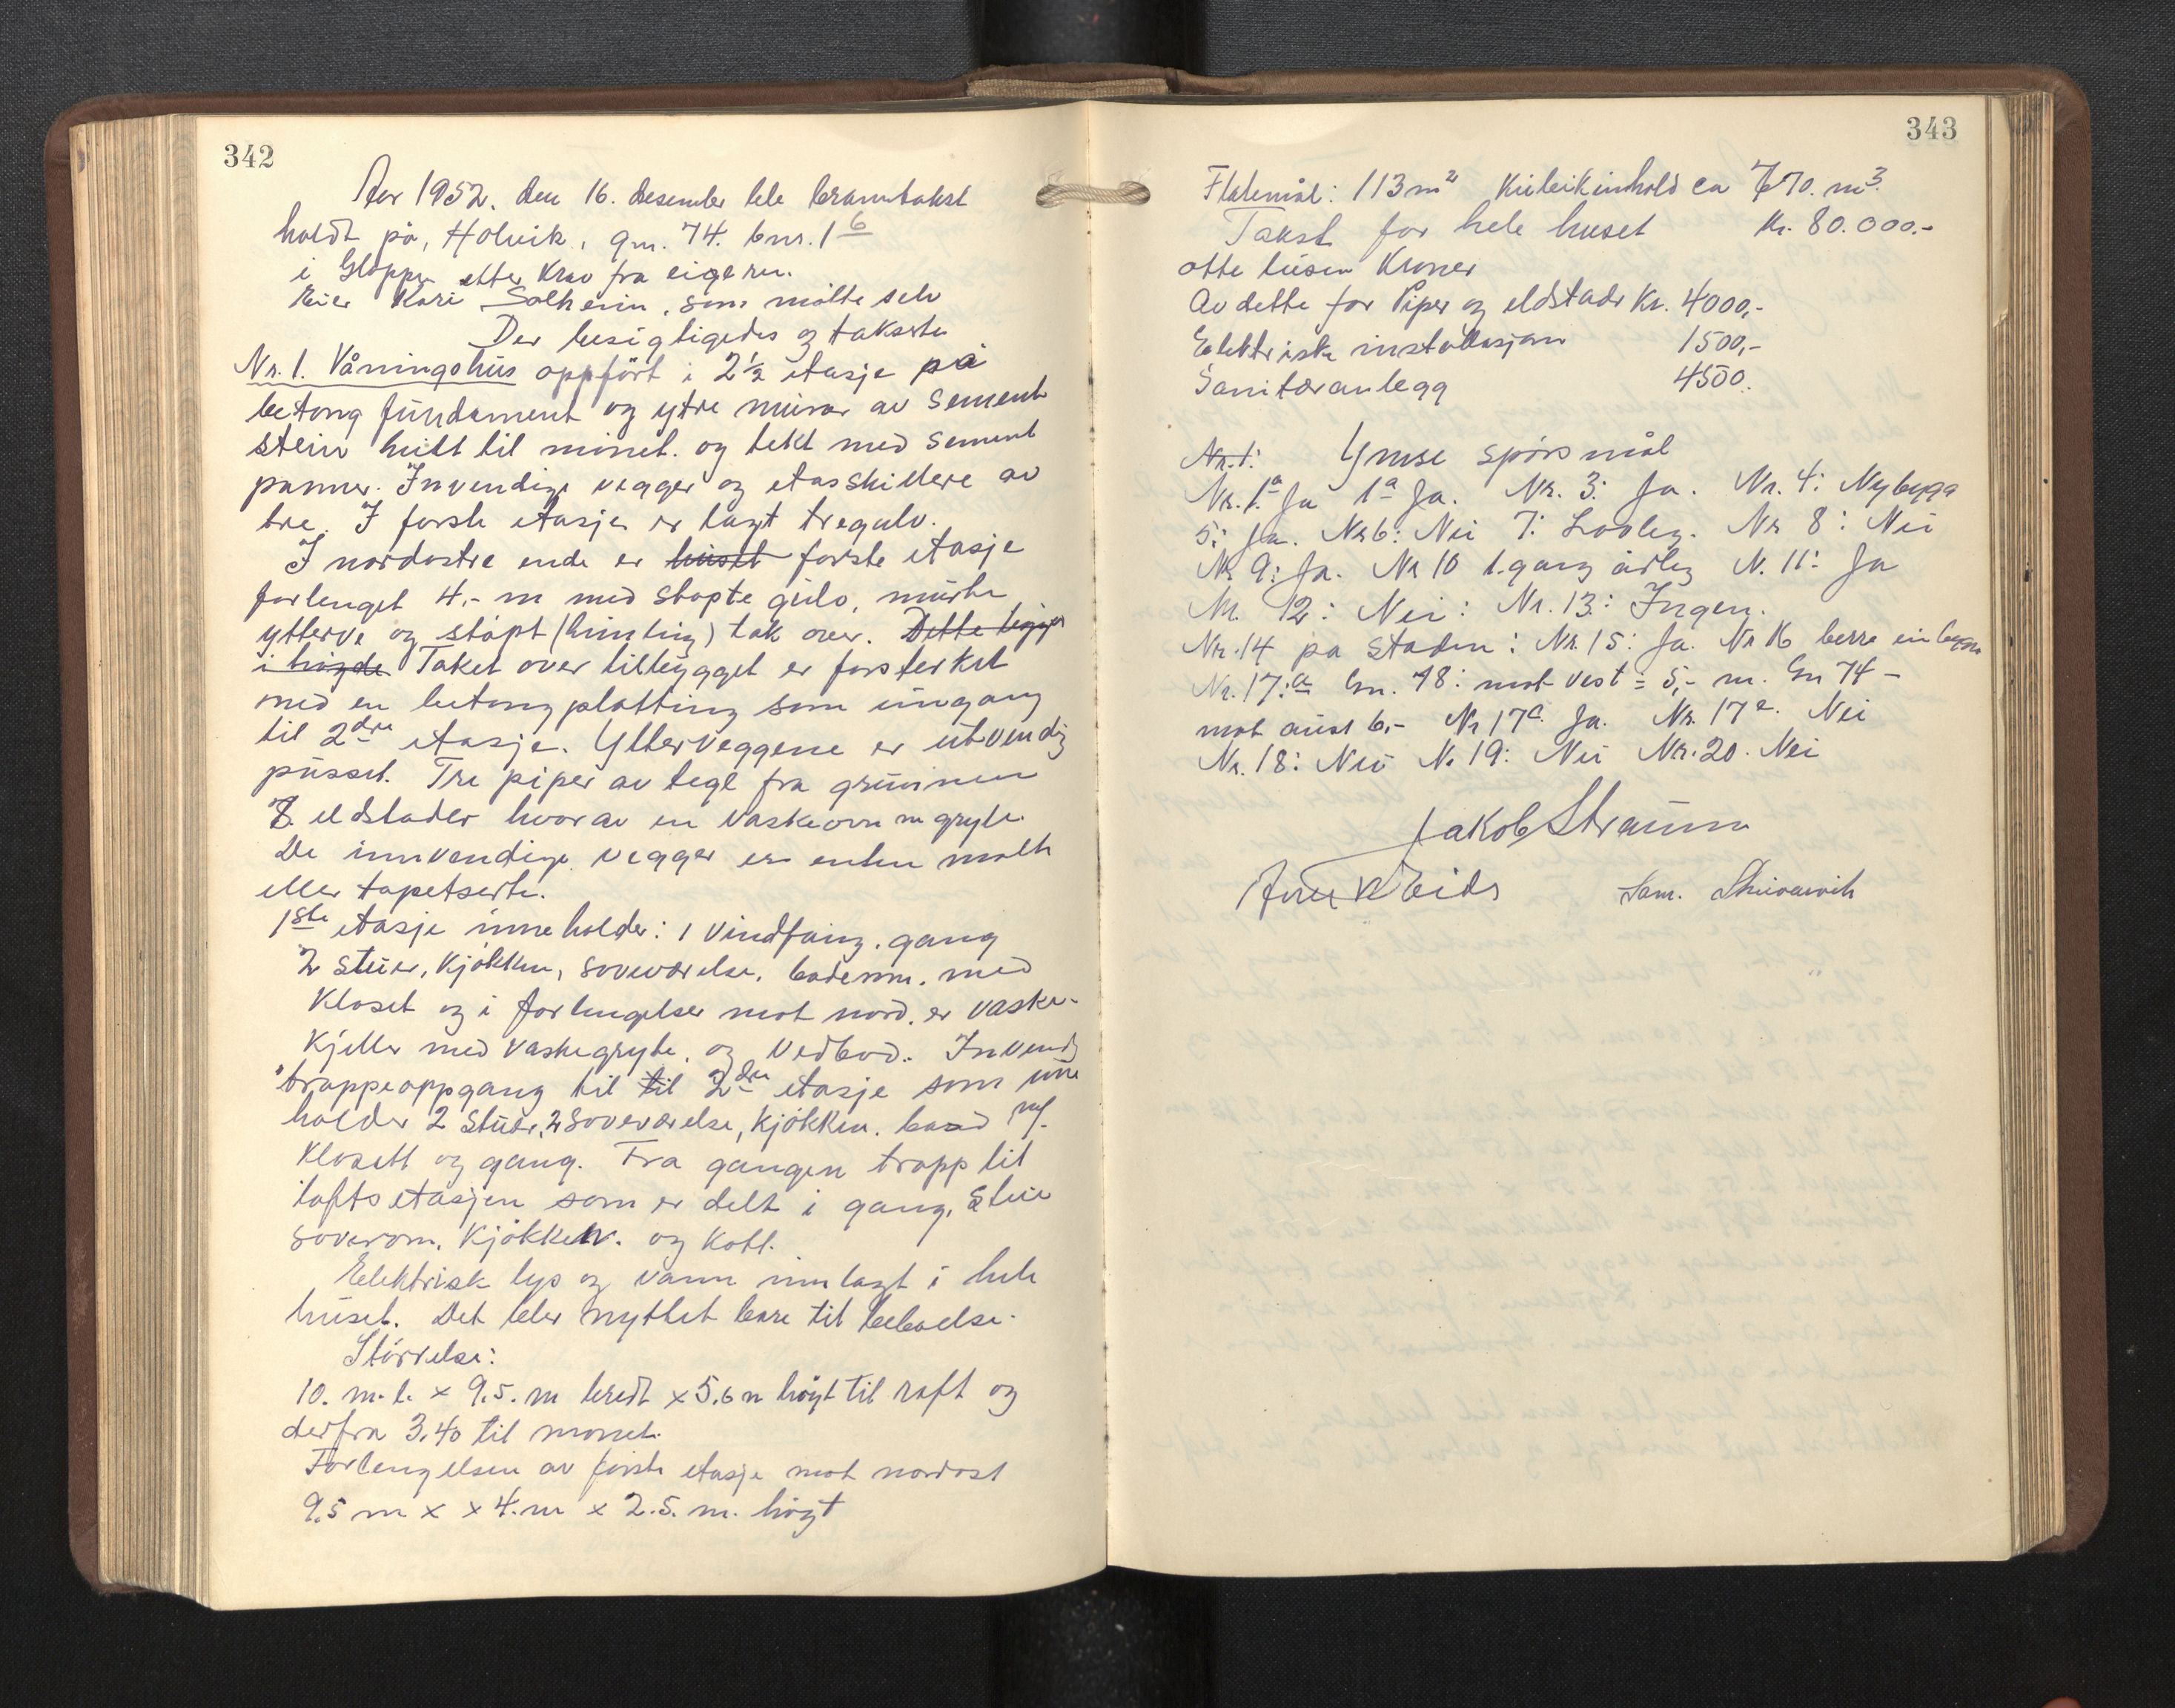 342
År 1952. den 16. desember ble branntakst
holdt på, Holvik, gnr. 74. bnr. 1 6
i Gloppen etter krav fra eigeren.
Eier Kari Solheim, som møtte selv
Der besigtigedes og takserte
Nr. 1. Våningshus oppført i 2½ etasje på
betong fundament og ytre murar av sement
stein huilt til mönet. og tekt med sement
panner. Invendige vegger og etasskillere av
tre. I første etasje er lagt tregulv.
I nordostre ende er huset første etasje
forlenget 4,- m med støpte gulv, murte
ytterve og støpt (himling) tak over. Dette ligger
i høyde Taket over tilbygget er forsterket
med en betong platting som inngang
til 2dre etasje. Ytterveggene er utvendig
pusset. Tre piper av tegl fra grunnen
8 eldstader hvorav en vaskeovn m gryte.
De innvendige vegger er enten malte
eller tapetserte.
1ste etasje inneholder: 1 vindfang, gang
2 stuer, kjøkken, soveværelse, baderom. med
Kloset og i forlengelser mot nord. er vaske-
kjeller med vaskegryte. og vedbod. Invend
trappeoppgang til til 2dre etasje som inne
holder 2 stuer, 2 soveværelse, kjøkken. bad m/
klosett og gang. Fra gangen trapp til
loftsetasjen som er delt i gang, stue
soverom, kjøkken. og kott.
Elektrisk lys og vann innlagt i hele
huset. Det blev nyttet bare til beboelse.
Størrelse:
10. m. l. x 9.5. m bredt x 5.6 m høyt til raft og
derfra 3.40 til mønet.
Forlengelsen av første etasje mot nordost
9.5 m x x 4. m x 2.5. m. høyt
343
Flatemål: 113 m2 Kubikinnhold ca 670. m3.
Takst for hele huset kr. 80.000.-
otte tusen Kroner
Av dette for Piper og eldstadr Kr. 4000,-
Elektriske installasjon 1500,-
Sanitæranlegg 4500.
Nr. 1: Ymse spørsmål
Nr. 1.a Ja 1a Ja. Nr. 3: Ja. Nr. 4: Nybygg
5: Ja. Nr 6: Nei 7: Lovleg. Nr 8: Nei
Nr 9: Ja. Nr 10 1. gang årleg N. 11: Ja
Nr. 12: Nei: Nr. 13: Ingen.
Nr. 14 på staden: Nr. 15: Ja. Nr 16 berre ein bygn
Nr. 17:a Gn. 78: mot vest = 5,- m. Gn 74 -
mot aust 6,- Nr 17c Ja. Nr. 17e. Nei
Nr. 18: Nei N. 19: Nei Nr. 20. Nei
Jakob Straume
Eide Sam.